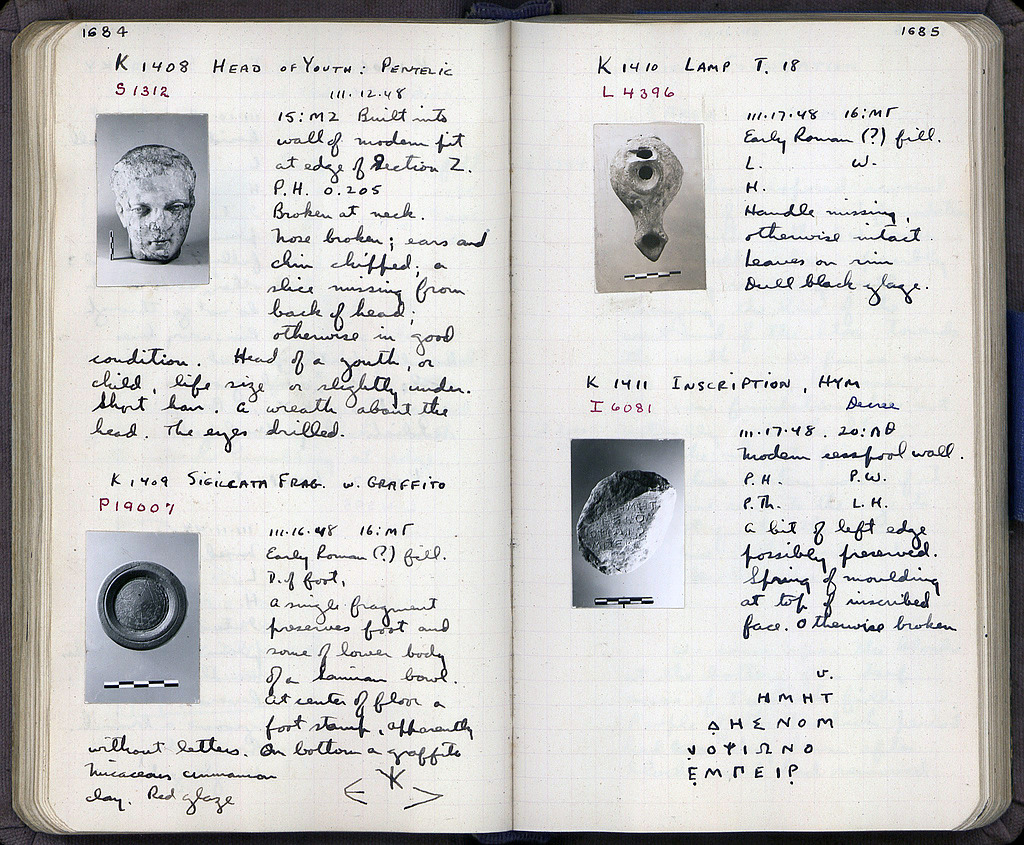 1684
K 1408 HEAD OF YOUTH: PENTELIC
S 1312
III.12.48
15:MZ Built into
wall of modern pit
at edge of Section Z.
P.H. 0.205
Broken at neck.
Nose broken; ears and
chin chipped; a
slice missing from
back of head;
otherwise in good
condition. Head of a youth, or
child, life size or slightly under.
Short hair. A wreath about the
head. The eyes drilled.
K 1409 SIGILLATA FRAG. W. GRAFFITO
P19007
III.16.48 16:ΜΓ
Early Roman (?) fill.
D. of foot,
A single fragment
preserves foot and
some of lower body
of a Samian bowl.
At center of floor a
foot stamp, apparently
without letters. On bottom a graffito
Micaceous cinnamon
clay. Red glaze
K
1685
K 1410 LAMP T. 18
L 4396
III.17.48 16:ΜΓ
Early Roman (?) fill.
L. W.
H.
Handle missing,
otherwise intact.
Leaves on rim
Dull black glaze.
K 1411 INSCRIPTION, HYM
Decree
I 6081
III.17.48. 20:ΛΘ
Modern cesspool wall.
P.H. P.W.
P.Th. L.H.
A bit of left edge
possibly preserved.
Spring of moulding
at top of inscribed
face. Otherwise broken
v.
ΗΜΗΤ
Δ̣ΗΣΝΟΜ
ΟΨΙΩΝΟ
Ε̣ΜΠΕΙΡ̣